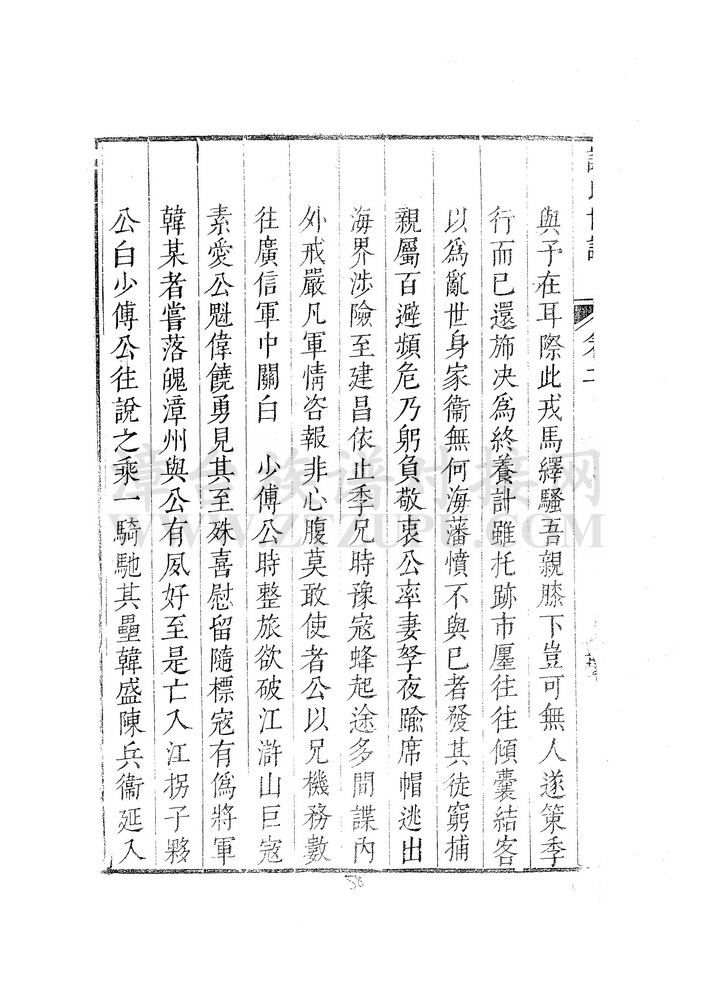 氏世譜
卷二
與予在耳際此戎馬繹騷吾親膝下豈可無人遂策季
行而已還斾决為終養計雖托跡市廛往往傾囊結客
以為亂世身家衞無何海藩憤不與巳者發其徒窮捕
親屬百避頻危乃躬負敬衷公率妻孥夜踰席帽逃出
海界涉險至建昌依止季兄時豫寇蜂起途多間諜內
外戒嚴凡軍情咨報非心腹莫敢使者公以兄機務數
往廣信軍中關白 少傅公時整旅欲破江滸山巨寇
素愛公魁偉饒勇見其至殊喜慰留隨標寇有僞將軍
韓某者嘗落魄漳州與公有夙好至是亡入江拐子夥
公白少傅公往說之乘一騎馳其壘韓盛陳兵衞延入
58
WWW.ZTZUPU.COM